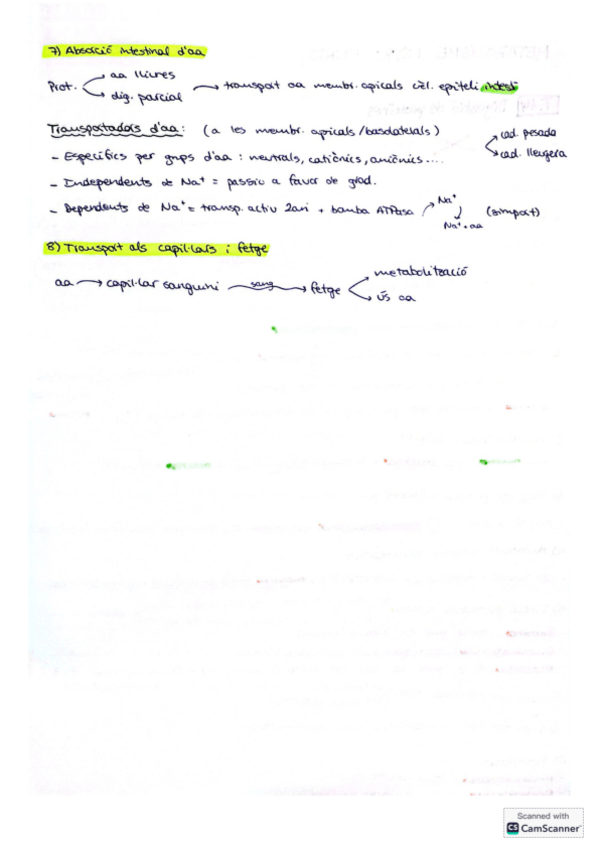 7) Absorció intestinal d'aa
Prot. → aa lliures
→ dig. parcial → transport aa membr. apicals cèl. epiteli intestí
Transportadors d'aa: (a les membr. apicals/basolaterals) → cad. pesada
→ cad. lleugera
- Específics per grups d'aa: neutrals, catiònics, aniònics....
- Independents de Na⁺ = passiu a favor de grad.
- Dependents de Na⁺ = transp. actiu 2ari + bomba ATPasa → Na⁺ (simport)
Na⁺ + aa
8) Transport als capil·lars i fetge
aa → capil·lar sanguini —sang→ fetge → metabolització
→ ús aa
Scanned with
CS CamScanner